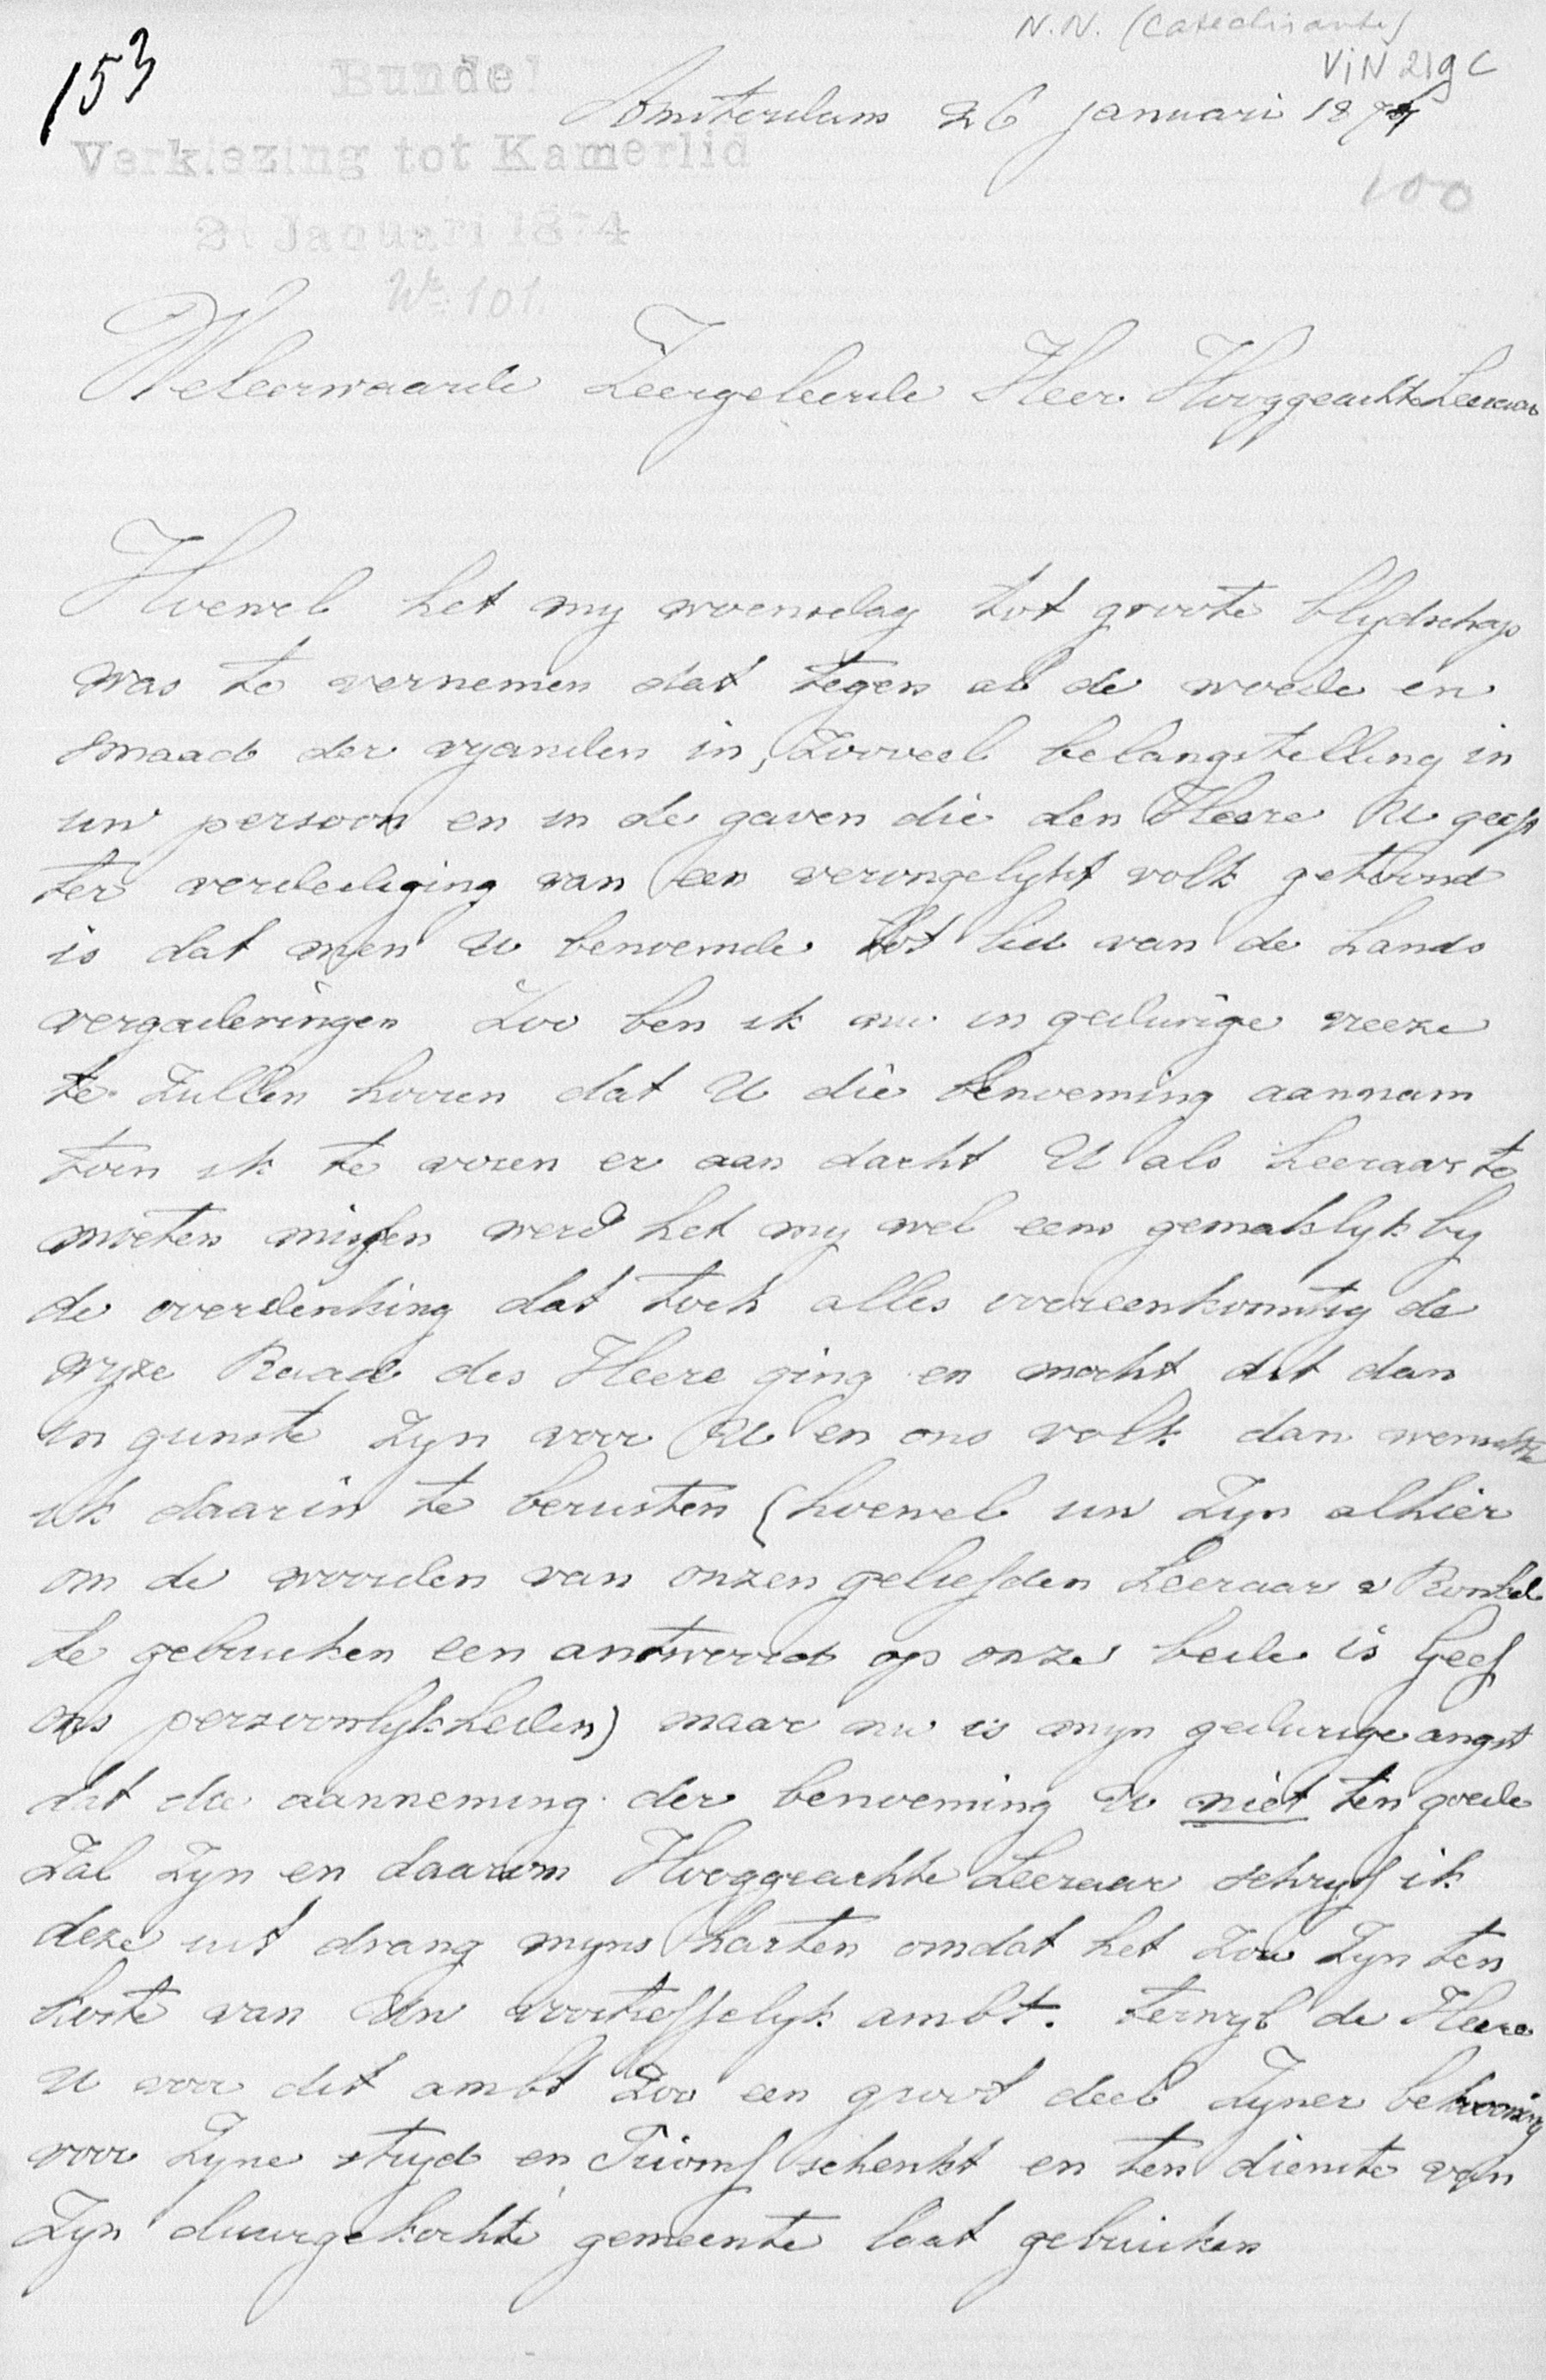 N.N. (Catechisante)
153
Bundel
VIN 219 C
Amsterdam 26 januari 1874
Verkiezing tot Kamerlid
100
21 Januari 1874
No. 101.
Weleerwaarde Zeergeleerde Heer Hooggeachte Leeraar
Hoewel het my woensdag tot groote blydschap
was te vernemen dat tegen al de woede en
smaad der vyanden in, zooveel belangstelling in
uw persoon en in de gaven die den Heere U geeft
ter verdediging van een verongelykt volk getoond
is dat men U benoemde tot lid van de Lands
vergaderingen Zoo ben ik nu in gedurige vreeze
te Zullen hooren dat U die benoeming aannam
toen ik te voren er aan dacht U als Leeraar te
moeten missen werd het my wel eens gemaklyk by
de overdenking dat toch alles overeenkomstig de
wyze Raad des Heere ging en mocht dit dan
in gunste Zyn voor U en ons volk dan wenschte
ik daarin te berusten (hoewel uw Zyn alhier
om de woorden van onzen geliefden Leeraar v Ronkel
te gebruiken een antwoord op onze bede is Geef
ons persoonlykheden) maar nu is myn gedurige angst
dat die aanneming der benoeming U niet ten goede
Zal Zyn en daarom Hooggeachte Leeraar schryf ik
deze uit drang myns harten omdat het Zou Zyn ten
koste van Uw voortreffelyk ambt. terwyl de Heere
U voor dit ambt Zoo een groot deel Zyner bekrooning
voor Zyne stryd en Triomf schenkt en ten dienste van
Zyn duurgekochte gemeente laat gebruiken